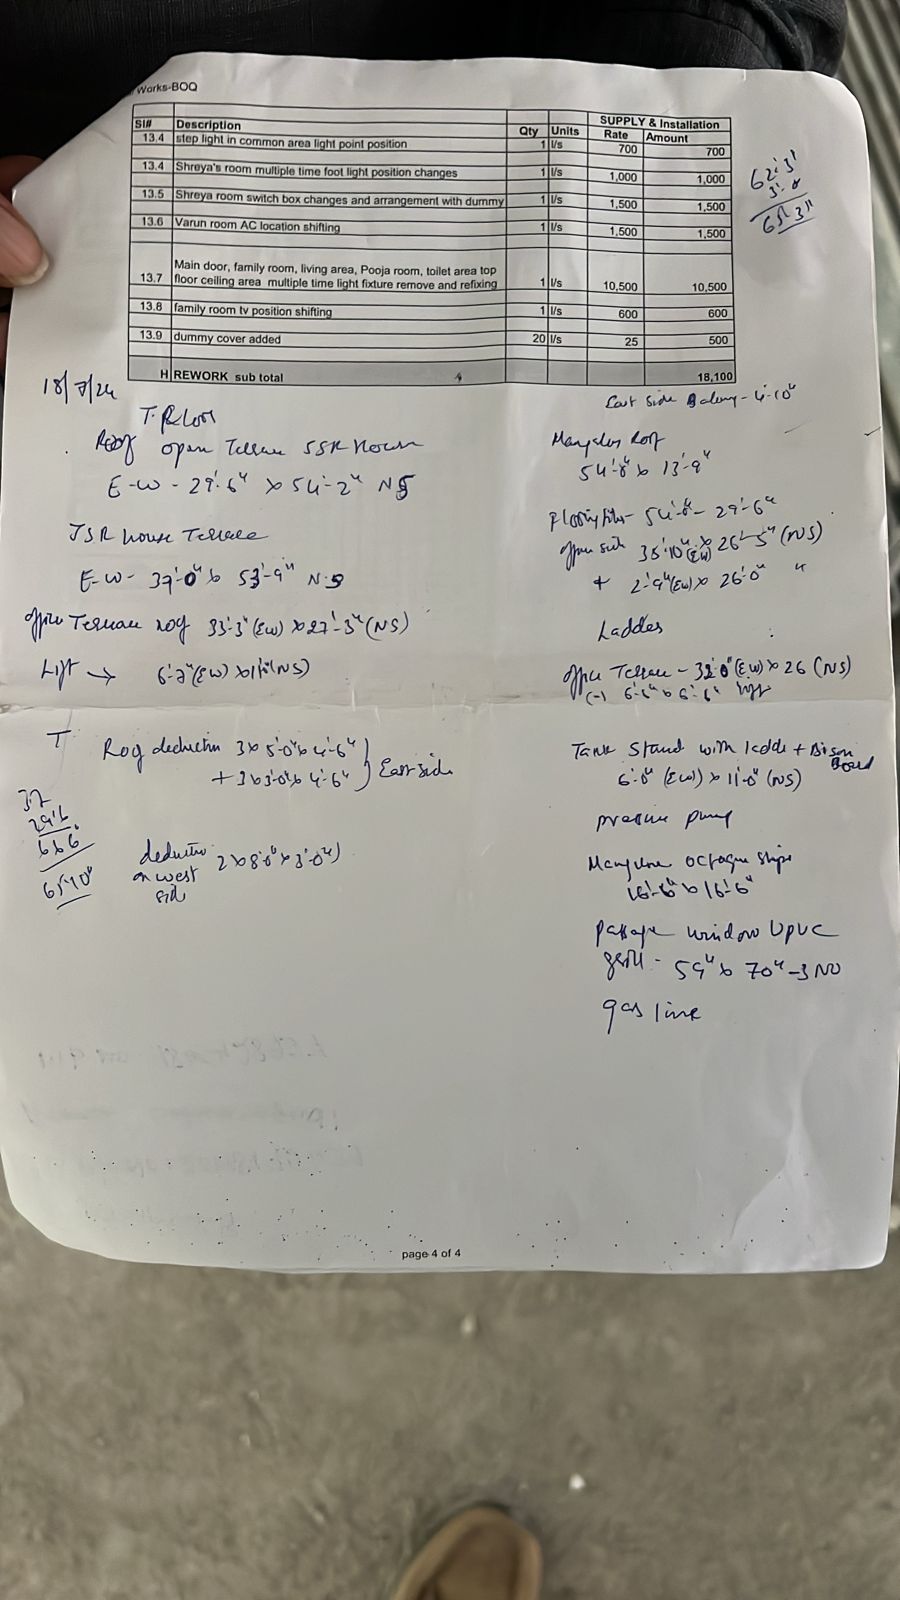 Works-BOQ
SI# Description Qty Units SUPPLY & Installation
Rate Amount
13.4 step light in common area light point position 1 l/s 700 700
13.4 Shreya's room multiple time foot light position changes 1 l/s 1,000 1,000
13.5 Shreya room switch box changes and arrangement with dummy 1 l/s 1,500 1,500
13.6 Varun room AC location shifting 1 l/s 1,500 1,500
Main door, family room, living area, Pooja room, toilet area top
13.7 floor ceiling area multiple time light fixture remove and refixing 1 l/s 10,500 10,500
13.8 family room tv position shifting 1 l/s 600 600
13.9 dummy cover added 20 l/s 25 500
H REWORK sub total 18,100
62'3"
65'3"
18/7/24
Roof open Terrace SSR House
E-W - 29'-6" x 54'-2" NS
JSR house Terrace
E-W- 37'-0" x 53'-9" N-S
office Terrace roof 33'-3" (EW) x 27'-3" (NS)
Lift → (EW) (NS)
T
Roof deduction 3x5'-0"x4'-6"
+ 3x3'-0"x4'-6" } East side
37
29'6
66'6
deduction 2x8'-0"x3'-0")
on west
side
East side Balcony - 4'-10"
Mangalore Roof
54'-8" x 13'-9"
Flooring tiles - 29'-6"
open side 35'-10" (EW) x 26'-5" (NS)
+ 2'-9" (EW) x 26'-0" "
Ladder
office Terrace - (EW) x 26 (NS)
(-) 6'-6" x 6'-6"
Tank Stand with ladder + Bison
Board
6'-0" (EW) x 11'-0" (NS)
pressure pump
octagon shape
16'-6" x 16'-6"
passage window UPVC
grill - 59" x 70" - 3 NO
gas line
page 4 of 4